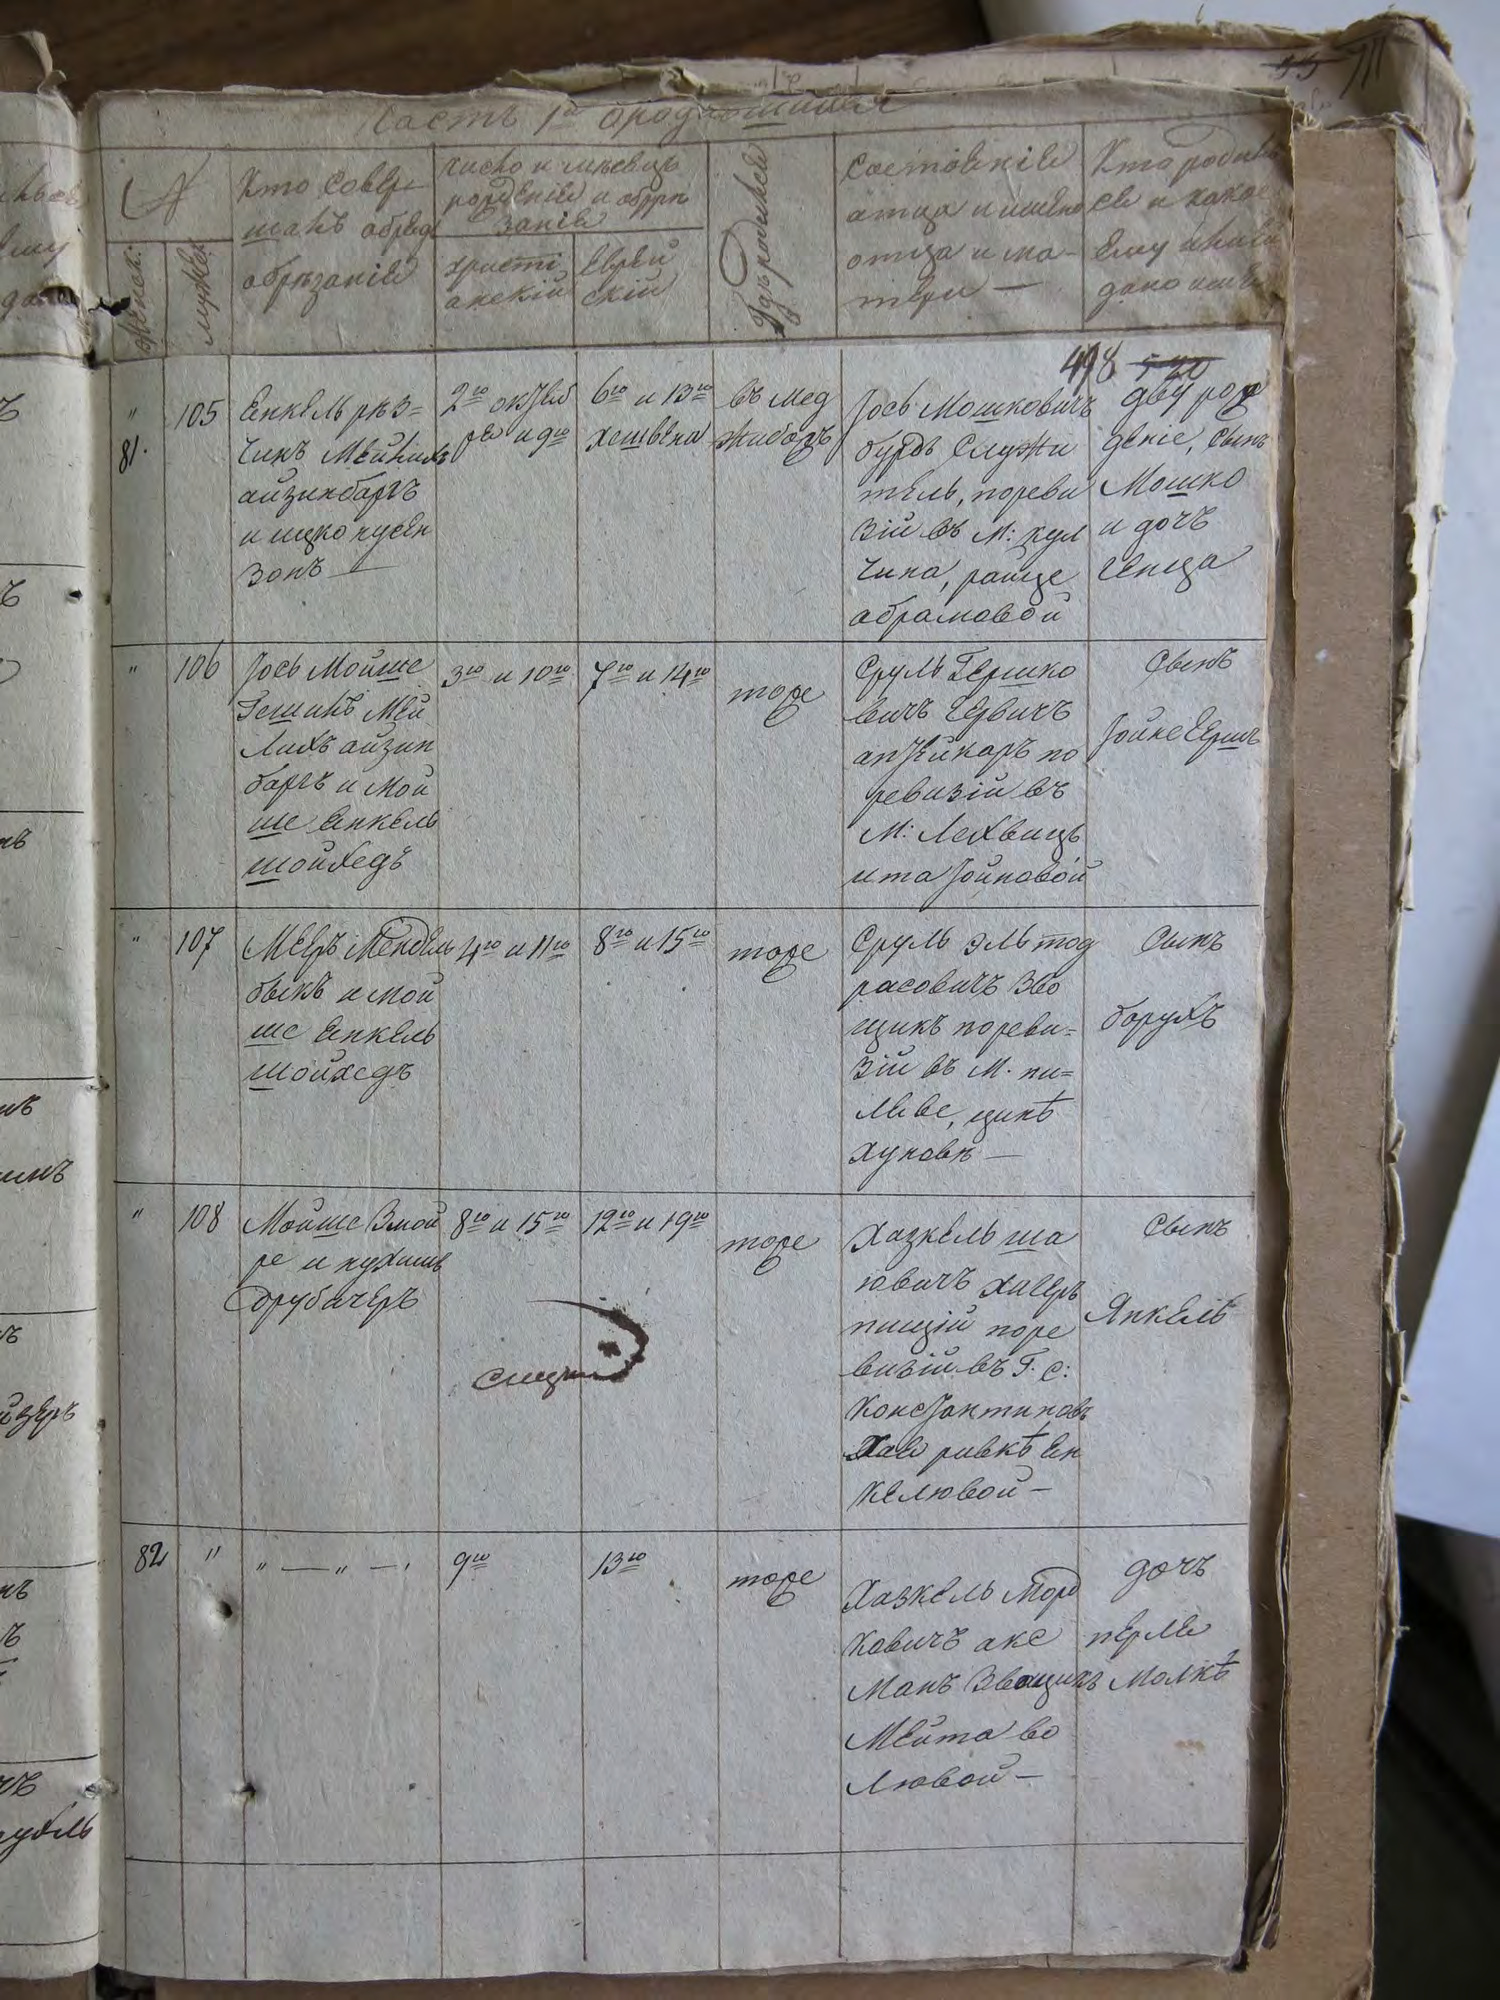 Часть 1я о родившихся
№
Женск:
мужеск
Кто совер
шалъ обрядъ
обрѣзанія
число и мѣсяцъ
рожденія и обрѣ
занія
христі
анскій
Еврей
скій
Гдѣ родился
Состояніе
отца и имена
отца и ма-
тери —
Кто родил
ся и какое
ему или ей
дано имя
498
"
81.
105
Енкель рѣз=
чикъ Мейлихъ
айзинбаргъ
и ицко нусен
зонъ —
2го октяб
ря и 9го
6го и 13го
хешвена
въ мед
жибожъ
Іось Мошковичъ
бурдъ Служи
тель, по реви
зіи въ М: кул
чина, райце
абрамовой
двурож
деніе, сынъ
Мошко
и дочъ
Генца
"
106
Іось Мойше
Гешинъ Мей
лихъ айзин
баргъ и Мой
ше Енкель
шойхедъ
3го и 10го
7го и 14го
тоже
Сруль Гершко
вичъ Гервичъ
аптейкаръ по
ревизіи въ
М: Лехвицъ
ита Іойновой
Сынъ
Іойне Гершъ
"
107
Меиръ Мендель
быкъ и Мой
ше Енкель
шойхедъ
4го и 11го
8го и 15го
тоже
Сруль эль тод
расовичъ Зво
щикъ по реви=
зіи въ М. пи=
ляве, ципѣ
хуновѣ —
Сынъ
борухъ
"
108
Мойше Змой
ре и нухимъ
Дорубачеръ
8го и 15го
12го и 19го
тоже
Хазкель ша
ювичъ хагеръ
нищій по ре
визіи въ Г. С:
Константиновъ
Хая ривкѣ Ен
келювой —
Сынъ
Янкель
82
"
" — " —
9го
13го
тоже
Хазкель Мор
ковичъ аксе
манъ Звощикъ
Мейта во
лювой —
дочъ
перля
Малкѣ